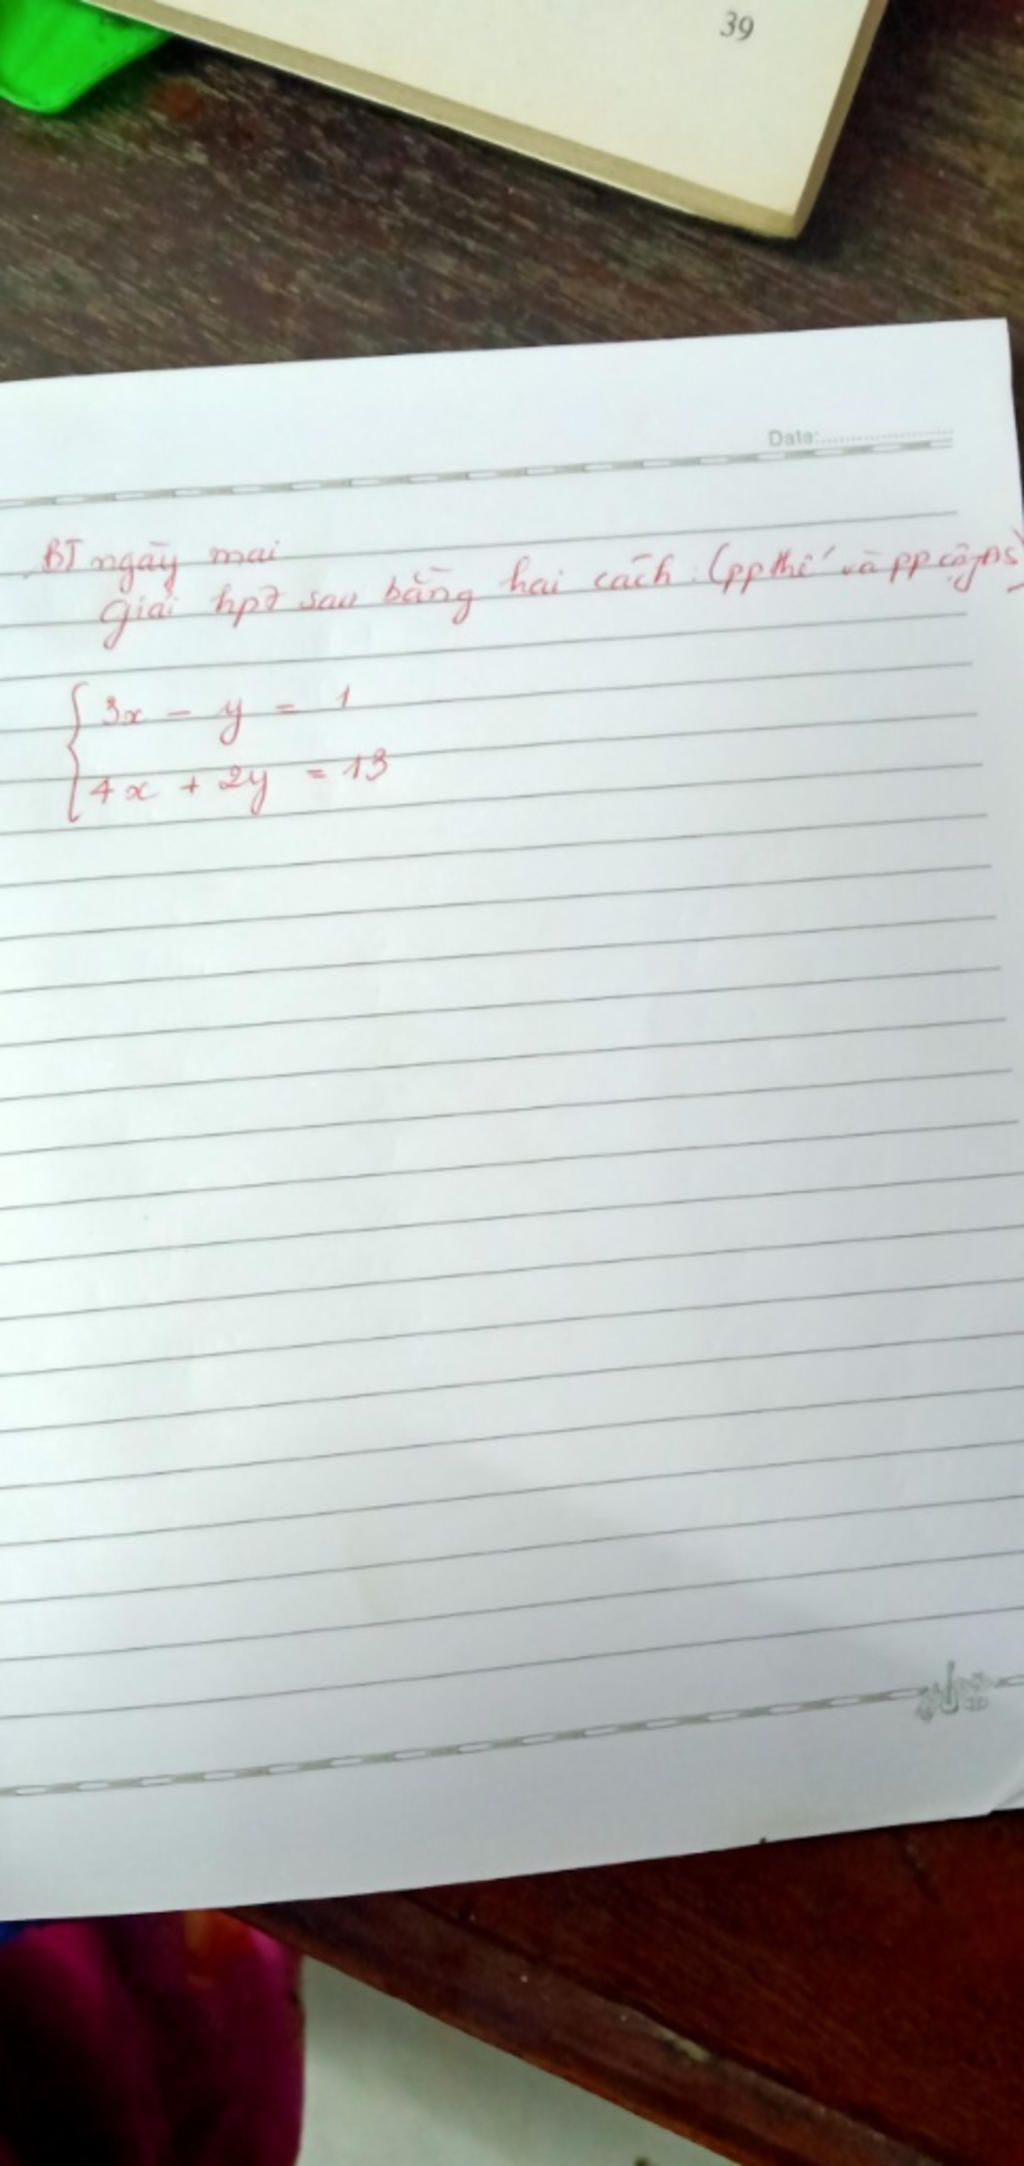 39
Date:
BT ngày mai
Giải hpt sau bằng hai cách: (pp thế và pp cộng ĐS)
3x - y = 1
4x + 2y = 13